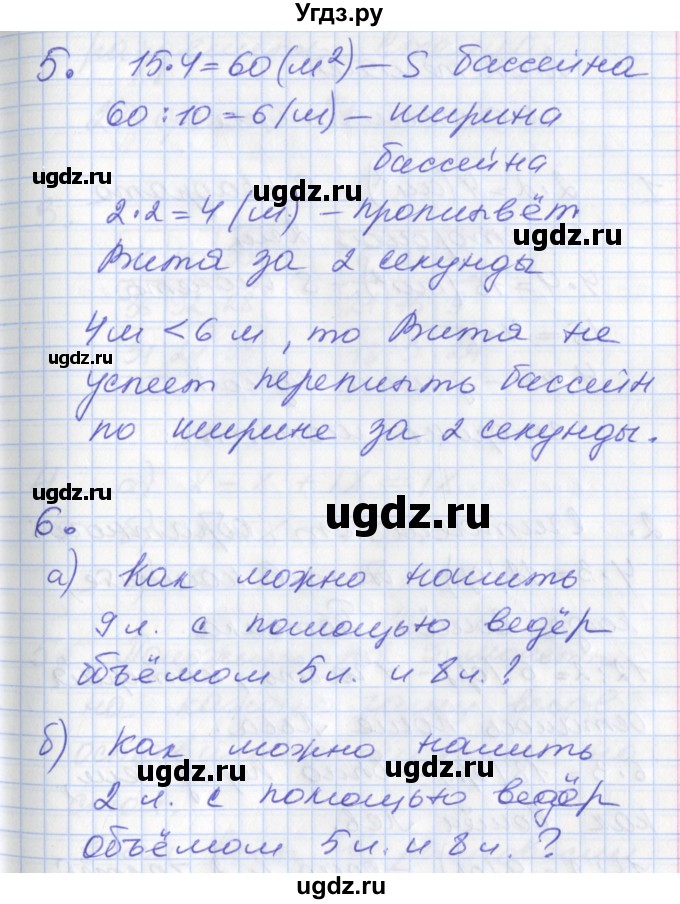 Угдз.ру
5. 15·4=60(м²) – S бассейна
60:10=6(м) – ширина
бассейна
ugdz.ru
ugdz.ru
2·2=4(м) – проплывёт
ugdz.ru
Витя за 2 секунды
4м < 6м, то Витя не
ugdz.ru
успеет переплыть бассейн
по ширине за 2 секунды.
ugdz.ru
ugdz.ru
6.
а) Как можно налить
9л. с помощью ведёр
объёмом 5л. и 8л.?
б) Как можно налить
ugdz.ru
ugdz.ru
2л. с помощью ведёр
объёмом 5л. и 8л.?
ugdz.ru